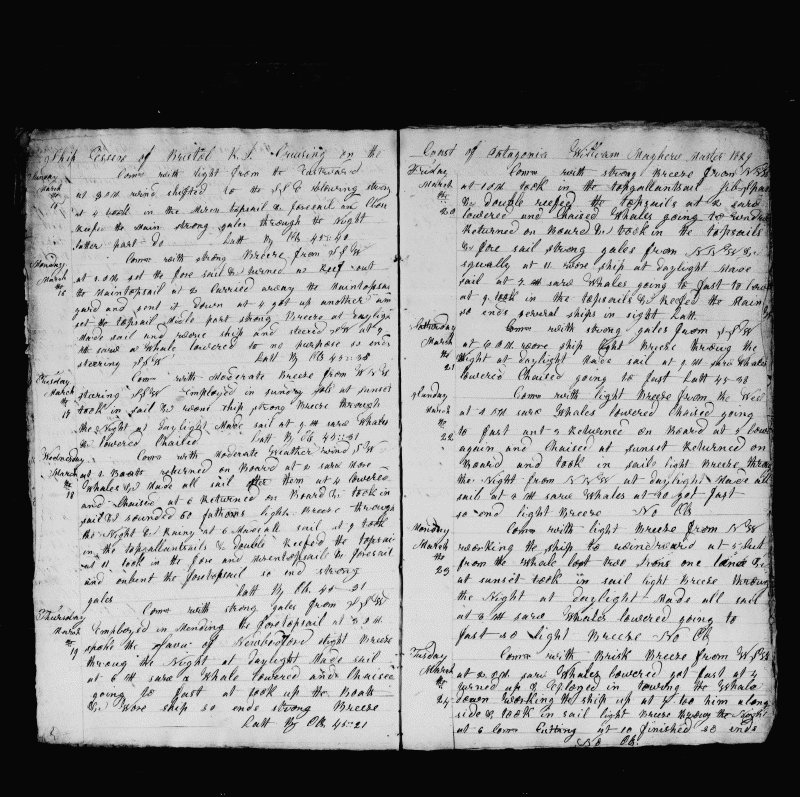 Ship Essex of Bristol R.I. Cruising on the
Sunday March the 15
Coms with light from to Eastward
at 3 P.M. wind shifted to the S.S.E. blowing strong
at 4 took in the Mizen topsail & foresail an Clou
Reefed the Main strong gales through the Night
latter part Do Latt By Ob 45=40
Monday March the 16
Coms with strong Breeze from S.S.W
at P.M. set the fore sail & turned a Reef out
the Maintopsail at 2 carried away the Maintopsail
yard and sent it down at 4 got up another and
set the topsail Midle part strong Breeze at daylight
Made sail and wore ship and steered SW at 7
AM saw a Whale lowered to no purpose so ends
steering S.S.W Latt By Ob 45=38
Tuesday March the 17
Coms with Moderate Breeze from W.N.W
steering S.S.W Employed in sundry Jobs at sunset
took in sail & wore ship strong Breeze through
the Night at Daylight Made sail at 9 AM saw Whales
& lowered Chaised Latt By Ob 45=31
Wednesday March the 18
Coms with Moderate Weather wind S.W
at 2 Boats returned on Board at saw More
Whales & Made all sail for them at 4 lowered
and Chaised at 6 Returned on Board & took in
sail & sounded 50 fathoms light Breeze through
the Night & Rainy at 6 Made all sail at 9 took
in the topgallantsails & double Reefed the topsails
at 11 took in the fore and Mizentopsails & foresail
and unbent the foretopsail so end strong
gales Latt By Ob 45=31
Thursday March the 19
Coms with strong gales from S.S.W
Employed in Mending the foretopsail at 3 P.M.
spoke the Java of Newbedford light Breeze
throug the Night at daylight Made sail
at 6 AM saw a Whale lowered and Chaised
going to fast at took up the Boats
& Wore ship so ends strong Breeze
Latt By Ob 45=21
Coast of Patagonia William Maghers Master 1829
Friday March the 20
Coms with strong Breeze from
at 1 P.M. took in the topgallantsail
& double reefed the topsails at 2 saw
lowered and Chaised Whales going to windward
Returned on Board & took in the topsails
& fore sail strong gales from N.N.W &
squally at 11 wore ship at daylight Made
sail at 7 AM saw Whales going to fast to lower
at 9 took in the topsails & Reefed the Main
so ends several ships in sight Latt
Saturday March the 21
Coms with strong gales from S.S.W
at 6 P.M. wore ship light Breeze throug the
Night at daylight Made sail at 9 AM saw Whales
lowered Chaised going to fast Latt 45=38
Sunday March the 22
Coms with light Breeze from the Wed
at 1 P.M. saw Whales lowered Chaised going
to fast ant 3 Returned on Board at 5 lowered
again and Chaised at sunset Returned on
Board and took in sail light Breeze throug
the Night from N.N.W at daylight Made all
sail at 8 AM saw Whales at 10 got fast
so end light Breeze No Ob
Monday March the 23
Coms with light Breeze from N.W
working the ship to windward at 5 Cut
from the Whale lost two Irons one lance &
at sunset took in sail light Breeze throug
the Night at daylight Made all sail
at 8 AM saw Whales lowered going to
fast so light Breeze No Ob
Tuesday March the 24
Coms with Brisk Breeze from
at 2 P.M. saw Whales lowered got fast at 4
turned up & Employed in towing the Whale
down working the ship up at 7 too him along
side & took in sail light Breeze throug the Night
at 6 Coms Cutting at 10 finished so ends
No Ob.